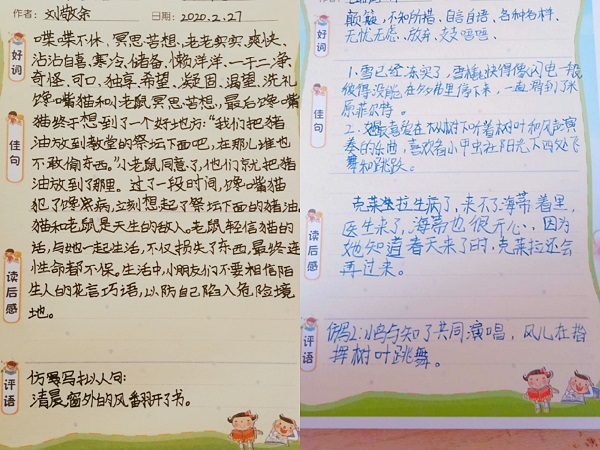 作者：刘敬余 日期：2020.2.27
好词
喋喋不休、冥思苦想、老老实实、爽快、
沾沾自喜、寒冷、储备、懒洋洋、一干二净、
奇怪、可口、独享、希望、凝固、渴望、洗礼
佳句
馋嘴猫和小老鼠冥思苦想，最后馋嘴
猫终于想到了一个好地方："我们把猪
油放到教堂的祭坛下面吧，在那儿谁也
不敢偷东西。"小老鼠同意了，他们就把猪
油放到了那里。过了一段时间，馋嘴猫
犯了馋痨病，立刻想起了祭坛下面的猪油
读后感
猫和老鼠是天生的敌人。老鼠轻信猫的
话，与她一起生活，不仅损失了东西，最终连
性命都不保。生活中，小朋友们不要相信陌
生人的花言巧语，以防自己陷入危险境
地。
评语
仿写拟人句：
清晨窗外的风翻开了书。
好词
颠簸、不知所措、自言自语、各种各样、
无忧无虑、放弃、
佳句
1.雪已经冻实了，雪橇快得像闪电一般
原菲尔特。
奏的乐曲，喜欢看小甲虫在阳光下四处飞
舞和跳跃。
读后感
克莱拉生病了，来不了海蒂着里，
医生来了，海蒂也很开心，因为
她知道春天来了时，克莱拉还会
再过来。
评语
仿写2：小鸟与知了共同演唱，风儿在指
挥树叶跳舞。